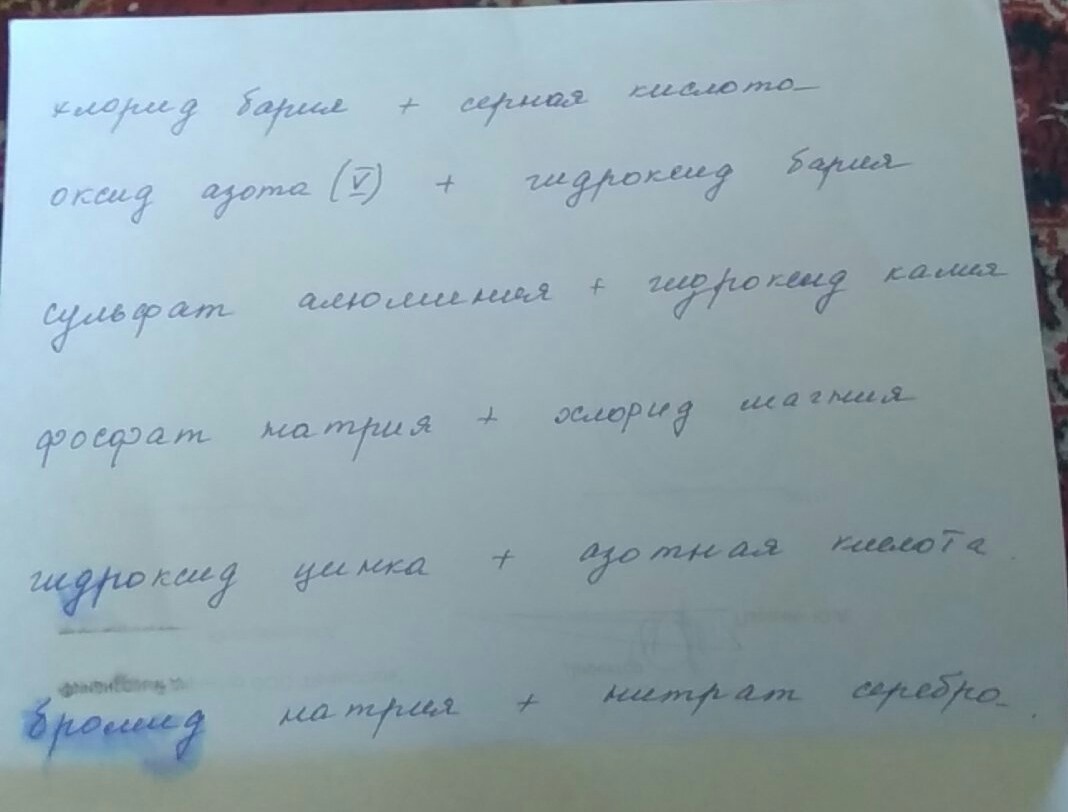 хлорид бария + серная кислота
оксид азота (V) + гидроксид бария
сульфат алюминия + гидроксид калия
фосфат натрия + хлорид магния
гидроксид цинка + азотная кислота
бромид натрия + нитрат серебра